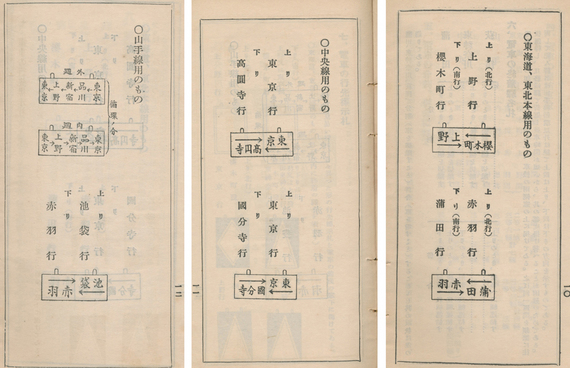 ○東海道、東北本線用のもの
上り(北行)
上野行
下り(南行)
櫻木町行
櫻木町 上野
上り(北行)
赤羽行
下り(南行)
蒲田行
蒲田 赤羽
一〇
○中央線用のもの
上り
東京行
下り
高圓寺行
東京 高円寺
上り
東京行
下り
國分寺行
東京 國分寺
一一
○山手線用のもの
循環ノ分
外廻
東京 品川 新宿 上野 東京
内廻
東京 品川 新宿 上野 東京
上り
池袋行
下り
赤羽行
池袋 赤羽
一二